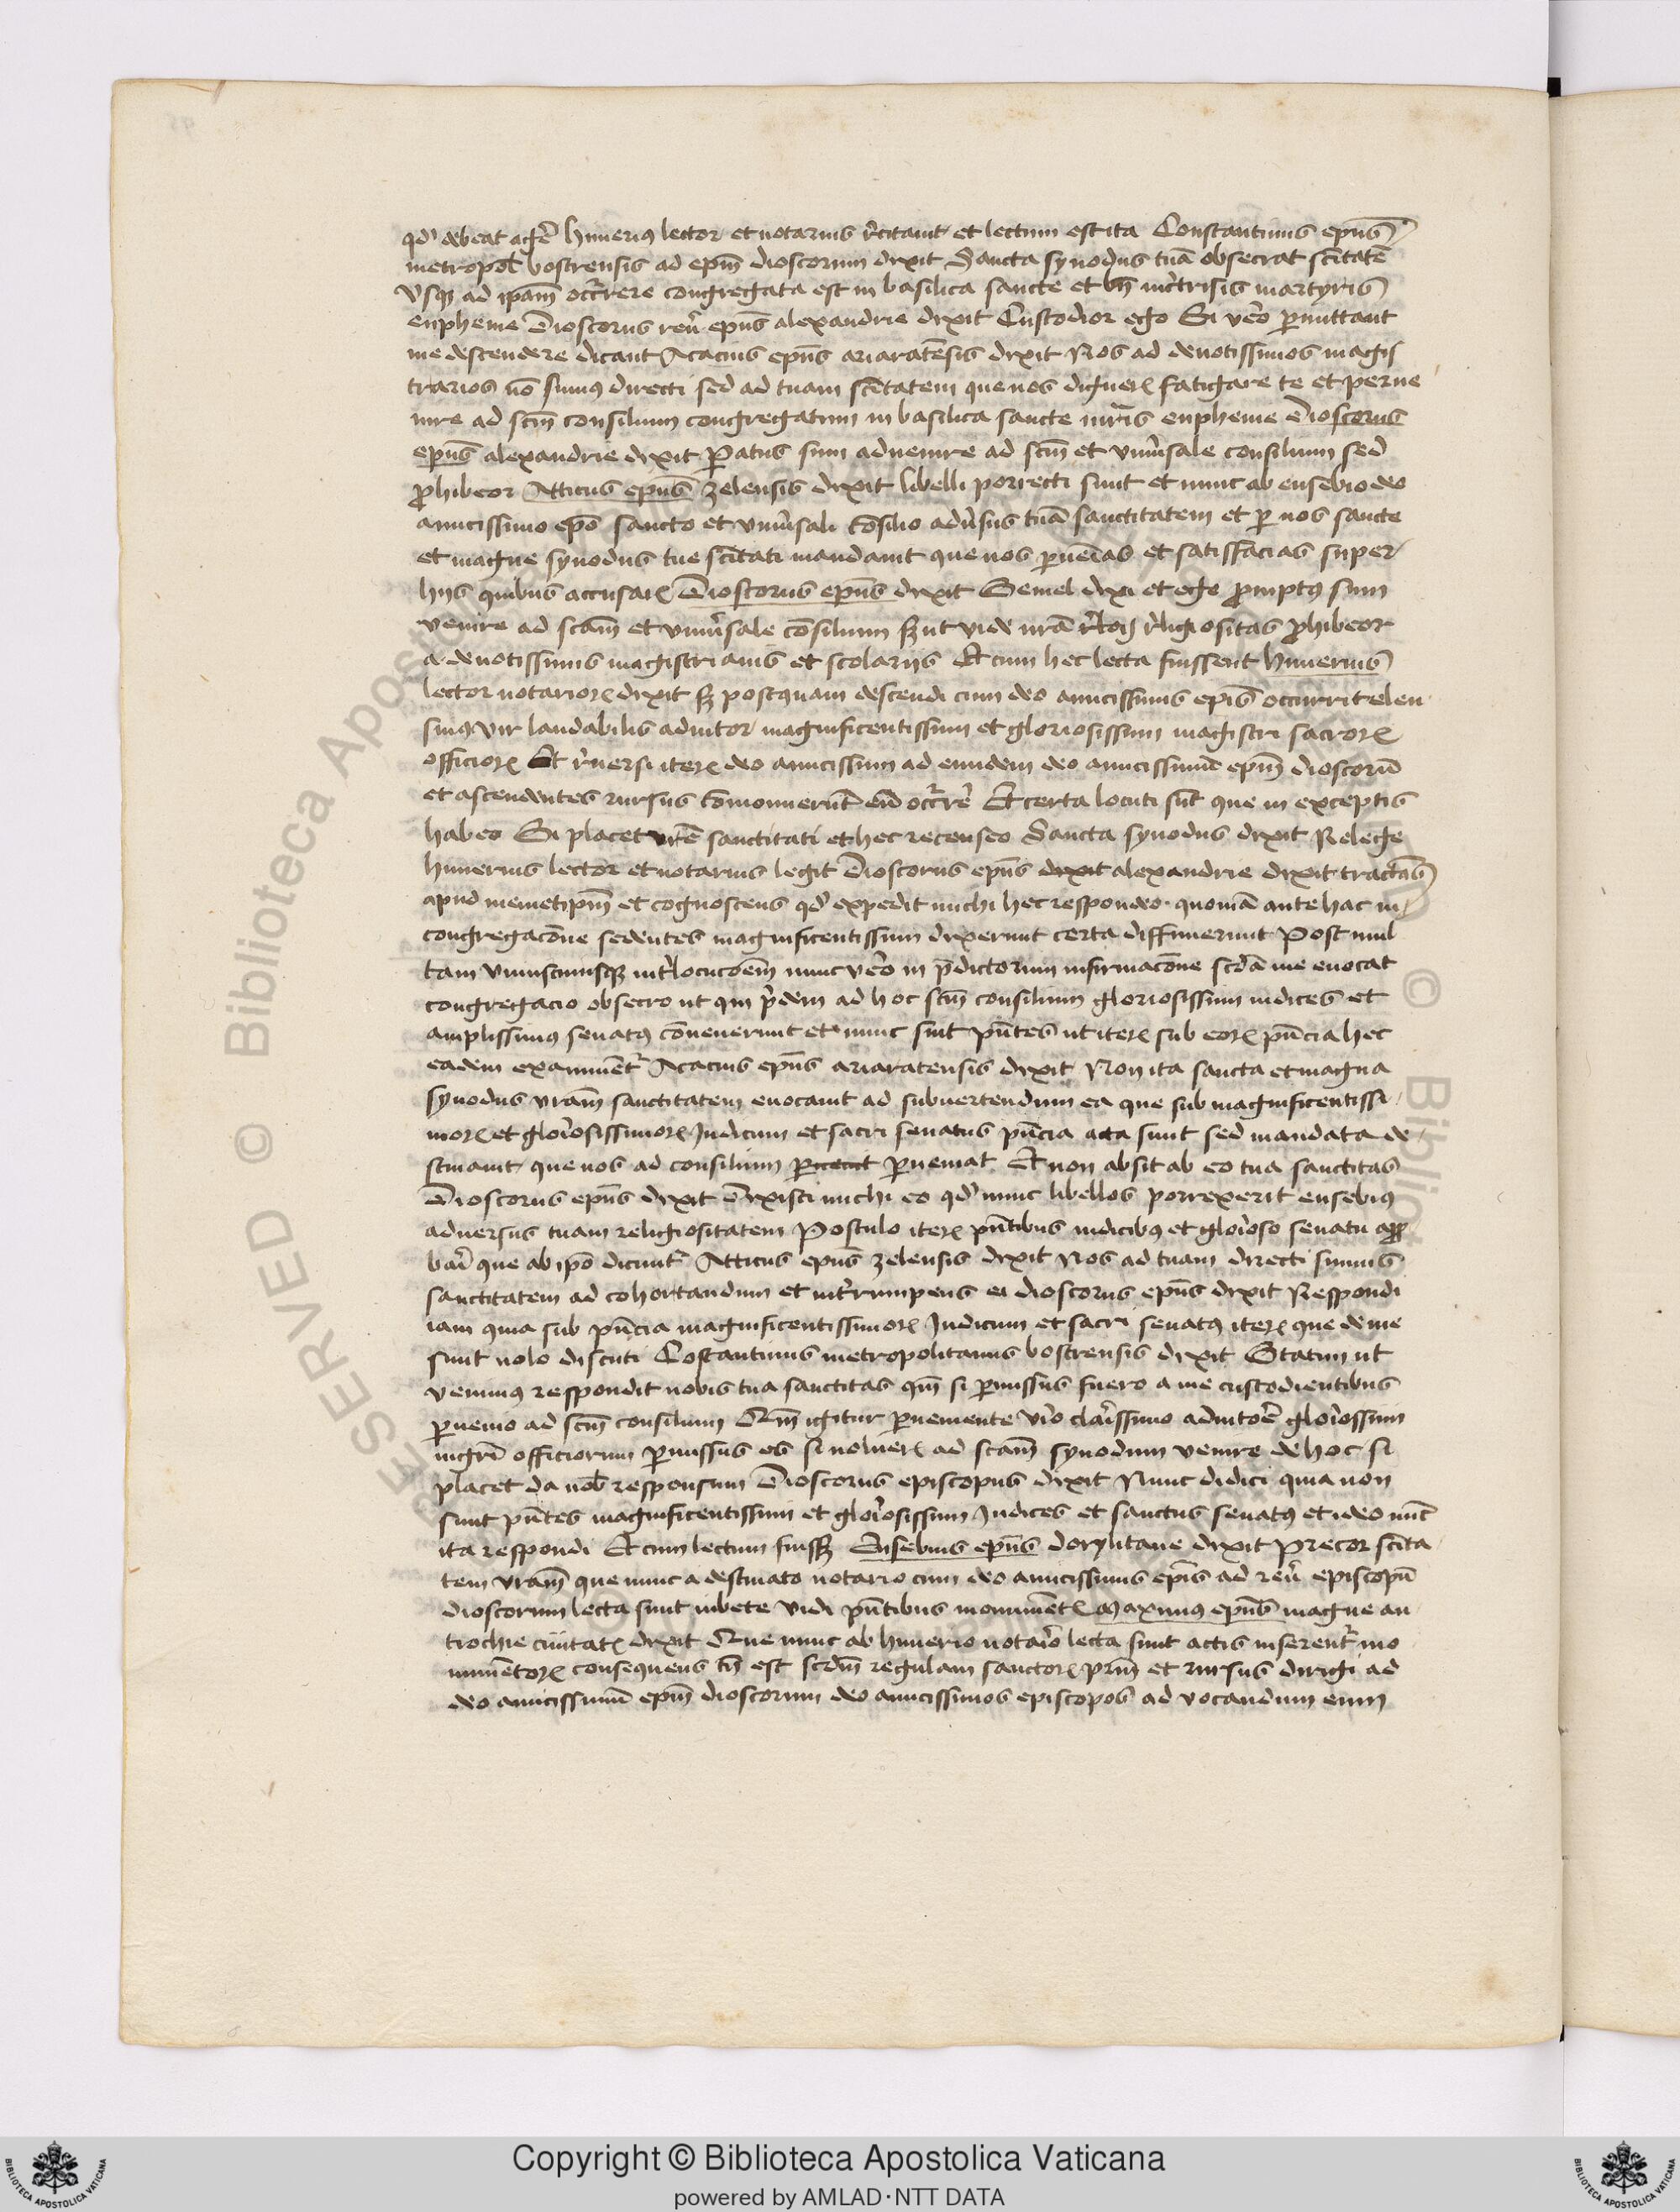 qd' debeat agē himeriꝰ lector et notarius r̄citauit et lectum est ita Constantinus epūs
metropol̄ bostrensis ad epm̄ dioscorum dixit Sancta synodus tuā obsecrat sc̄itatē
Vsqꝫ ad ip̄am occ̄rrere congregata est in basilica sancte et bn̄ victricis martyris
eupheme Dioscorus reu' epūs alexandrie dixit Custodior ego Si v'o ꝑmittant
me descendere dicant Acacius epūs ariaratēsis dixit Nos ad deuotissimos magis
trarios nō sumꝰ directi sed ad tuam sc̄itatem que nos dignerꝭ fatigare te et perue
nire ad scm̄ consilium congregatum in basilica sancte mr̄is eupheme Dioscorus
epūs alexandrie dixit ꝑatus sum aduenire ad scm̄ et vniu'sale consilium sed
ꝓhibeor Atticus epūs zelensis dixit libelli porrecti sunt et nunc ab eusebio deo
amicissimo epō sancto et vniu'sali cōsilio adu'sus tuā sanctitatem et ꝑ nos sancte
et magne synodus tue sc̄itati mandauit que nos ꝑuenias et satisfacias super
hijs quibus accusarꝭ Dioscorus epūs dixit Semel dixi et ego ꝓmptꝰ sum
venire ad scām et vniu'sale cōsilium sꝫ ut vide nrā r̄ligiositas ꝓhibeor
a deuotissimis magistrianis et scolarijs Et cum hec lecta fuissent himerius
lector notariorꝝ dixit sꝫ postquam descendi cum deo amicissimis epīs occurrit eleu
sinꝰ vir laudabilis adiutor magnificentissimi et gloriosissimi magistri sacrorꝝ
officiorꝝ Et r̄uersi iterꝝ deo amicissimi ad eundem deo amicissimū epm̄ dioscorū
et ascendentes rursus cōmonuerūt eū occ̄rrē Et certa locuti sūt que in exceptis
habeo Si placet vrē sanctitati et hec recenseo Sancta synodus dixit Relege
himerius lector et notarius legit Dioscorus epūs dixit alexandrie dixit tractās
apud memetipm̄ et cognoscens qd' expedit michi hec respondeo quoniā ante hac in
congregacōne sedentes magnificentissimi dixerunt certa diffinierunt Post mul
tam vniuscuiusqꝫ int̄locucōem nunc v'o in p̄dictorum infirmacōne scdā me euocat
congregacio obsecro ut qui p̄dem ad hoc scm̄ consilium gloriosissimi iudices et
amplissimꝰ senatꝰ cōuenerunt et nunc sint pn̄tes ut iterꝝ sub eorꝝ pn̄cia hec
eadem examinēt' Acacius epūs ariaratensis dixit Non ita sancta et magna
synodus vrām sanctitatem euocauit ad subuertendum ea que sub magnificentissi
morꝝ et glor̄osissimorꝝ Judicum et sacri senatus pn̄cia acta sunt sed mandata de
stinauit que nos ad consilium ꝑueniat Et non absit ab eo tua sanctitas
Dioscorus epūs dixit Dixisti michi eo qd' nunc libellos porrexerit eusebiꝰ
aduersus tuam religiositatem Postulo iterꝝ pn̄tibus iudicibꝰ et glor̄oso senatu apꝓ
bar̄i que ab ip̄o dicunt' Atticus epūs zelensis dixit Nos ad tuam directi sumus
sanctitatem ad cohortandum et int̄rumpens ei dioscorus epūs dixit Respondi
iam quia sub pn̄cia magnificentissimorꝝ Judicum et sacri senatꝰ iterꝝ que de me
sunt uolo discuti Costantinus metropolitanus bostrensis dixit Statim ut
venimꝰ respondit nobis tua sanctitas qm̄ si ꝑmissus fuero a me custodientibus
ꝑuenio ad scm̄ consilium Qm̄ igitur ꝑueniente viro clar̄ssimo adiutorē glor̄ossimi
mgrī officiorum ꝑmissus es si uoluerꝭ ad scām synodum venire de hoc si
placet da nob̄ responsum Dioscorus episcopus dixit Nunc didici quia non
sunt pn̄tes magnificentissimi et glor̄osissimi Judices et sanctus senatꝰ et ideo nūc
ita respondi Et cum lectum fuissꝫ Eusebius epūs dorylitane dixit Precor sc̄ita
tem vrām que nunc a destinato notario cum deo amicissimis epīs ad reu' episcopū
dioscorum lecta sunt iubete vidi pn̄tibus monimētꝭ Maximꝰ epūs magne an
tiochie ciuitatꝭ dixit Que nunc ab himerio notar̄o lecta sunt actis inserent' mo
numētorꝝ consequens tn̄ est scdm̄ regulam sanctorꝝ prm̄ et rursus dirigi ad
deo amicissimū epm̄ dioscorum deo amicissimos episcopos ad vocandum eum
Copyright © Biblioteca Apostolica Vaticana
powered by AMLAD·NTT DATA